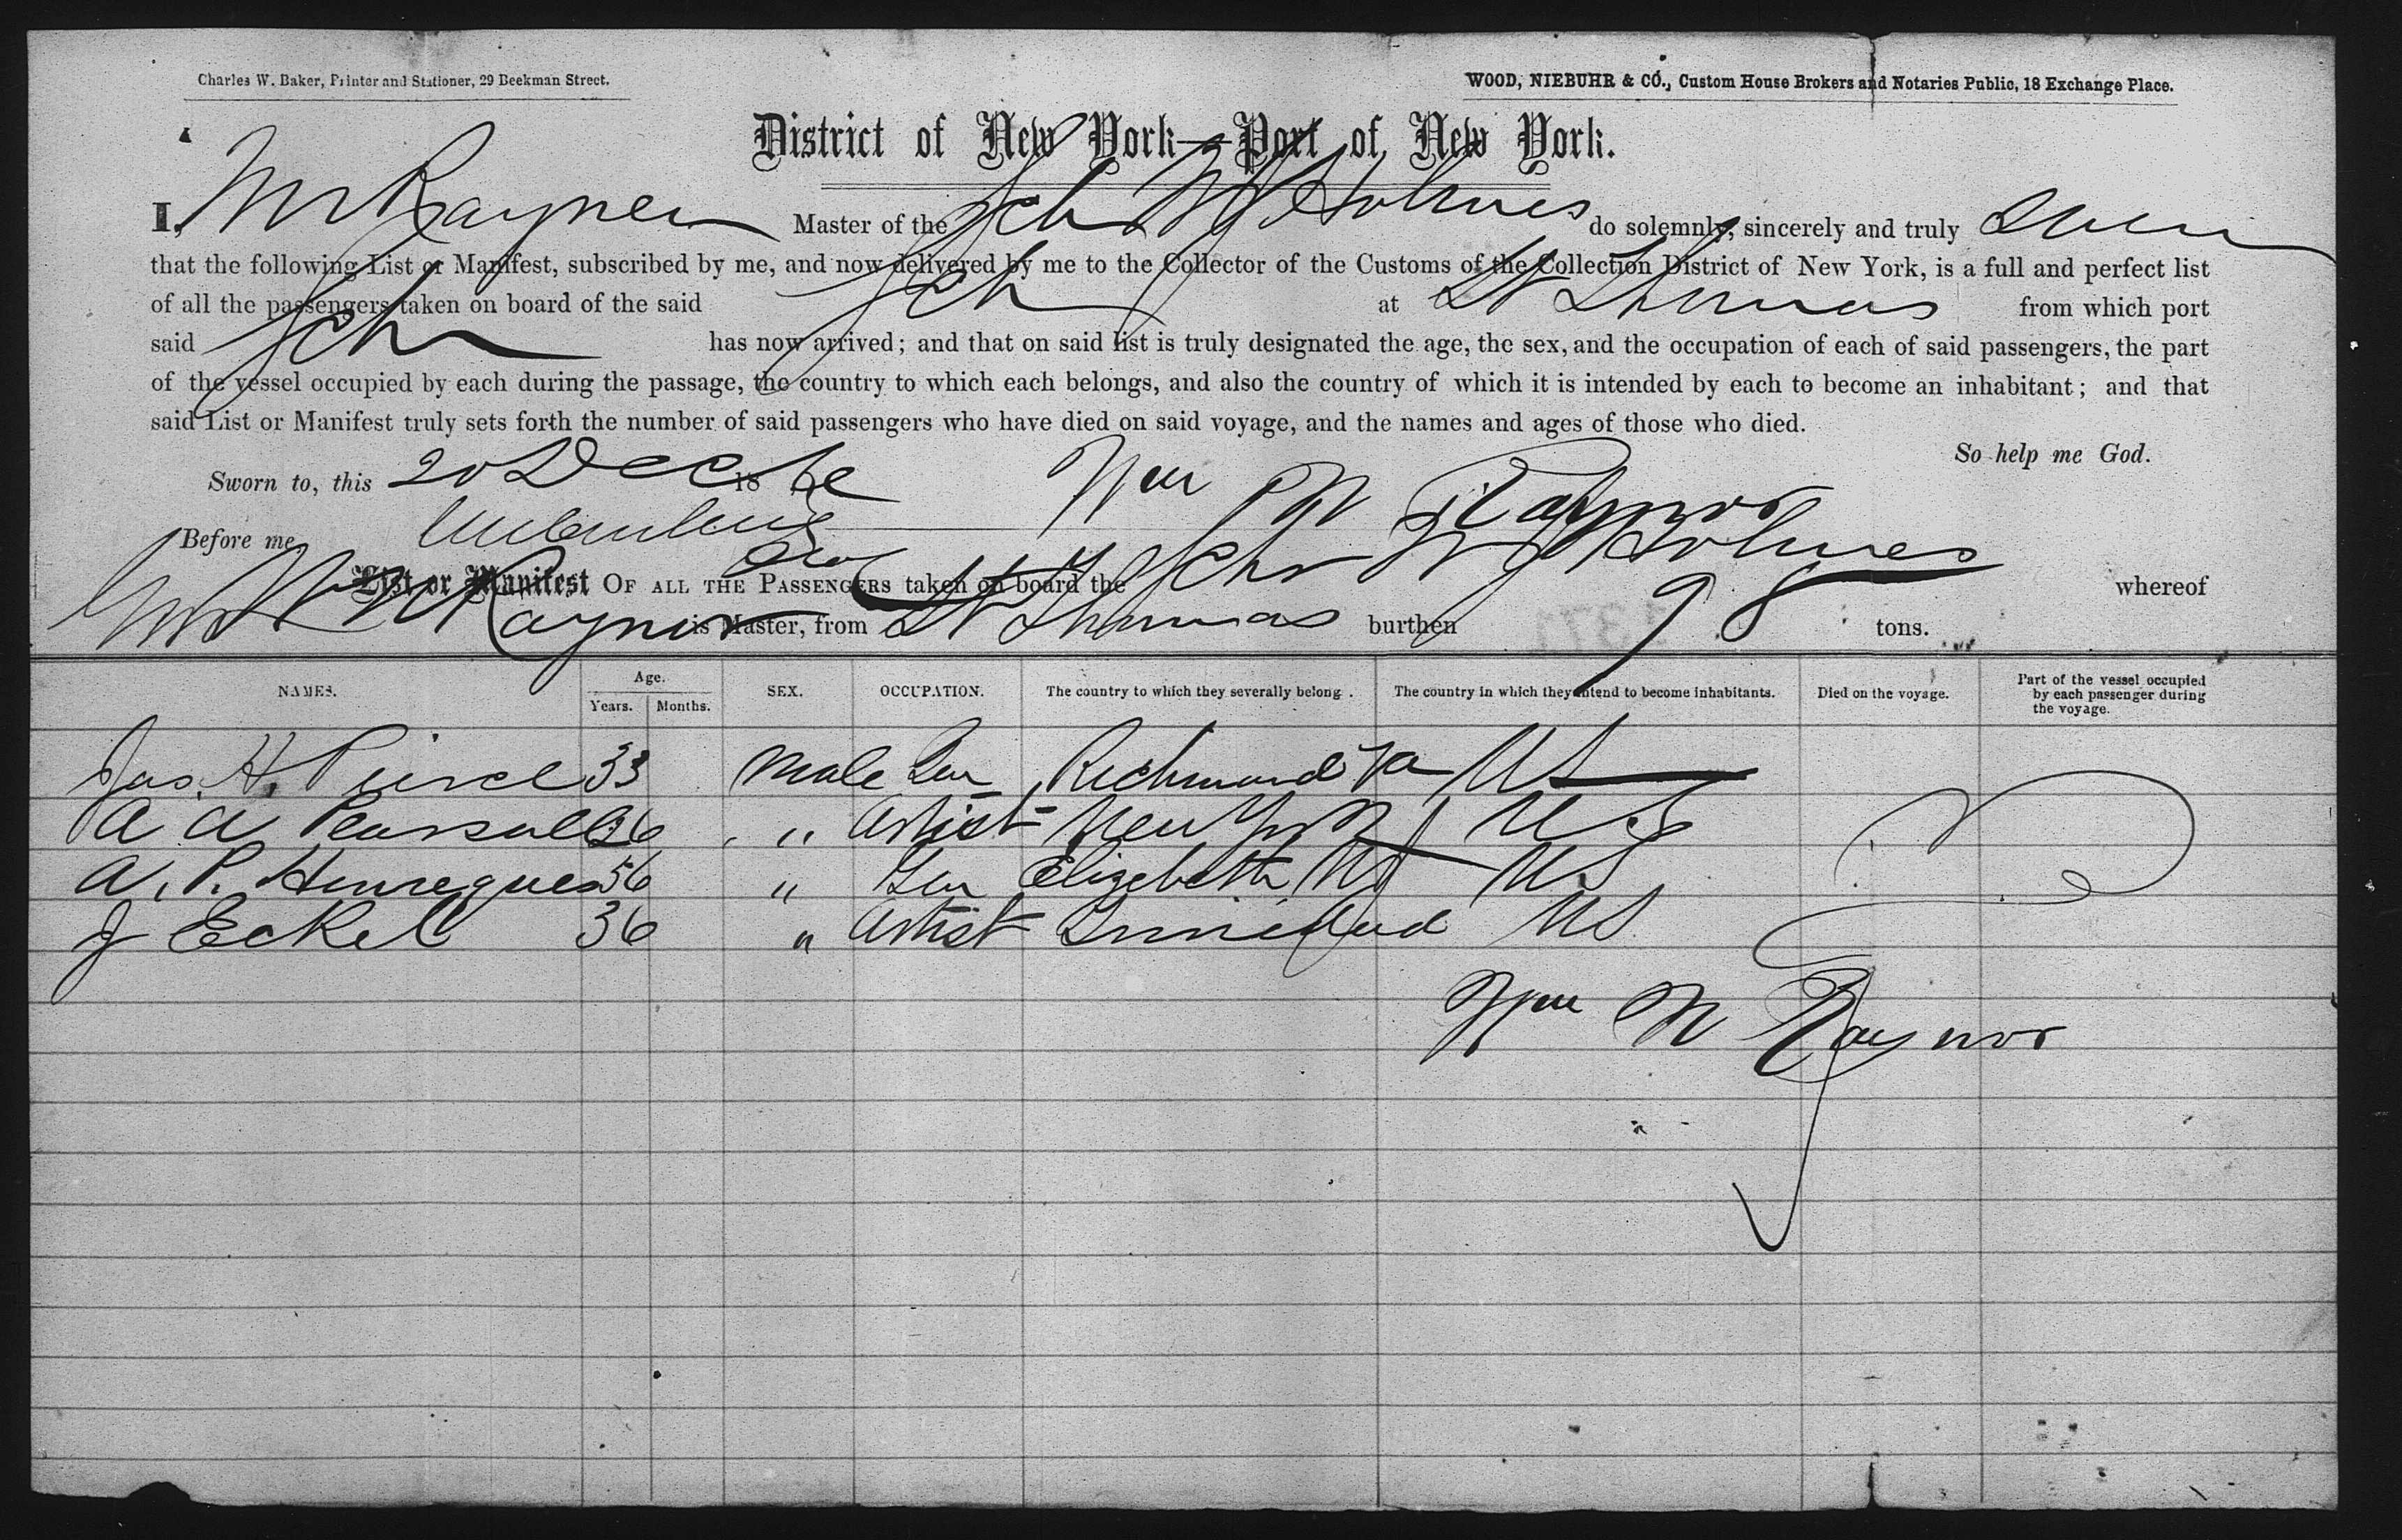 Charles W. Baker, Printer and Stationer, 29 Beekman Street.
WOOD, NIEBUHR & CO., Custom House Brokers and Notaries Public, 18 Exchange Place.
District of New York—Port of New York.
I, Wm Raynor Master of the Sch W Holmes do solemnly, sincerely and truly swear
that the following List or Manifest, subscribed by me, and now delivered by me to the Collector of the Customs of the Collection District of New York, is a full and perfect list
of all the passengers taken on board of the said Sch at St Thomas from which port
said Schr has now arrived; and that on said list is truly designated the age, the sex, and the occupation of each of said passengers, the part
of the vessel occupied by each during the passage, the country to which each belongs, and also the country of which it is intended by each to become an inhabitant; and that
said List or Manifest truly sets forth the number of said passengers who have died on said voyage, and the names and ages of those who died.
So help me God.
Sworn to, this 20 Dec 18
Wm M Raynor
Before me
List or Manifest OF ALL THE PASSENGERS taken on board the Schr Holmes whereof
Wm M Raynor is Master, from St Thomas burthen 98 tons.
NAMES. Age. Years. Months. SEX. OCCUPATION. The country to which they severally belong. The country in which they intend to become inhabitants. Died on the voyage. Part of the vessel occupied by each passenger during the voyage.
Jas. H. Pierce 33 Male Richmond Va US
A A Pearsall 26 " Artist New York US
A. P. Henreques 56 " Elizabeth NJ US
J Eckel 36 " Artist Trinidad US
Wm M Raynor